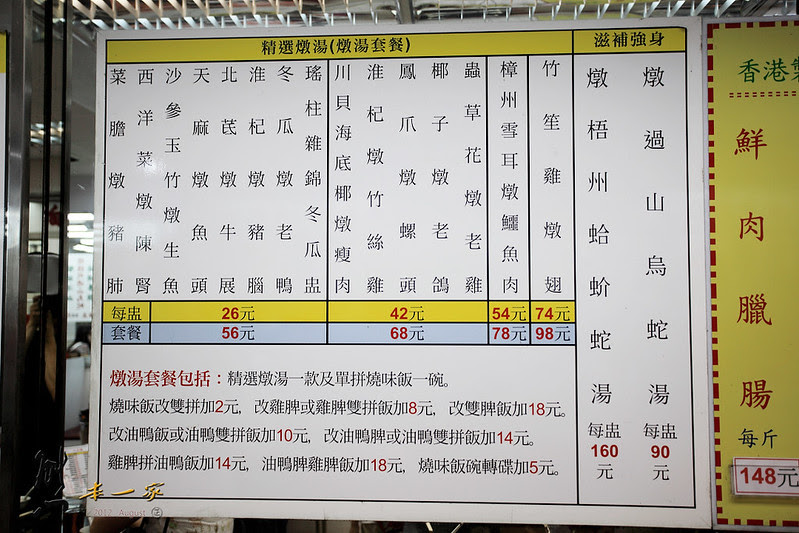 精選燉湯(燉湯套餐)
滋補強身
菜膽燉豬肺
西洋菜燉陳腎
沙參玉竹燉生魚
天麻燉魚頭
北芪燉牛展
淮杞燉豬腦
冬瓜燉老鴨
瑤柱雜錦冬瓜盅
川貝海底椰燉瘦肉
淮杞燉竹絲雞
鳳爪燉螺頭
椰子燉老鴿
蟲草花燉老雞
樟州雪耳燉鱷魚肉
竹笙雞燉翅
每盅 26元 42元 54元 74元
套餐 56元 68元 78元 98元
燉梧州蛤蚧蛇湯
每盅
160
元
燉過山烏蛇湯
每盅
90
元
燉湯套餐包括：精選燉湯一款及單拼燒味飯一碗。
燒味飯改雙拼加2元, 改雞脾或雞脾雙拼飯加8元, 改雙脾飯加18元。
改油鴨飯或油鴨雙拼飯加10元, 改油鴨脾或油鴨雙拼飯加14元。
雞脾拼油鴨飯加14元, 油鴨脾雞脾飯加18元, 燒味飯碗轉碟加5元。
香港
鮮肉臘腸
每斤
148元
丰一家
2012. August